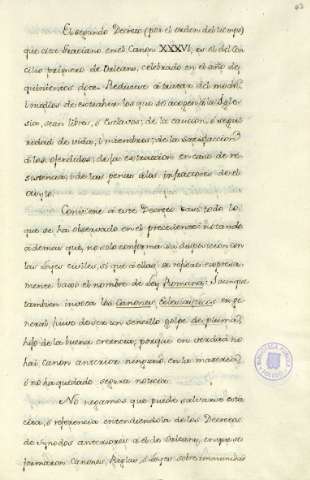 63
El segundo Decreto (por el orden del tiempo)
que cita Graciano en el Canon XXXVI, es el del Con-
cilio primero de Orleans, celebrado en el año de
quinientos doce. Reducese a tratar del modo,
i medios de extraher los que se acogen a la Igle-
sia, sean libres, o esclavos; de la caucion, o segu-
ridad de vida, i miembros; de la satisfaccion
a los ofendidos; de la extraccion en caso de re-
sistencia; i de las penas a los infractores de el
asylo.
Conviene a este Decreto casi todo lo
que se ha observado en el precedente: notando
ademas que, no solo conforma su disposicion con
las Leyes civiles, si que a ellas se refiere expresa-
mente bajo el nombre de Ley Romana: i aunque
tambien invoca los Canones Eclesiasticos en ge-
neral, tuvo de ser un sencillo golpe de pluma,
hijo de la buena creencia; porque en verdad no
hai canon anterior ninguno, en la materia,
o no ha quedado segura noticia.
No negamos que puede salvarse esta
cita, o referencia entendiendola de los Decretos
de Synodos anteriores a el de Orleans, en que se
formaron Canones, Reglas, o Leyes sobre inmunidad
BIBLIOTECA PUBLICA
TOLEDO